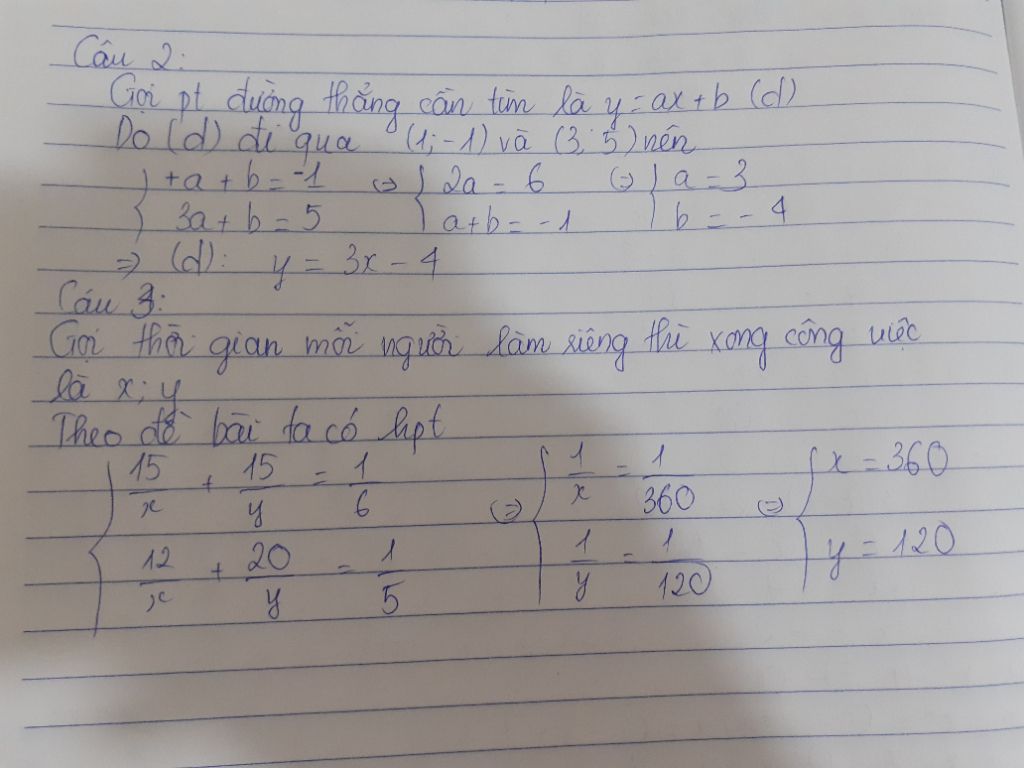 Câu 2:
Gọi pt đường thẳng cần tìm là y = ax + b (d)
Do (d) đi qua (1; -1) và (3; 5) nên
{ +a + b = -1 (=) { 2a = 6 (=) { a = 3
3a + b = 5 a+b = -1 b = -4
=> (d): y = 3x - 4
Câu 3:
Gọi thời gian mỗi người làm riêng thì xong công việc
là x; y
Theo đề bài ta có hpt
{ 15/x + 15/y = 1/6 (=) { 1/x = 1/360 (=) { x = 360
12/x + 20/y = 1/5 1/y = 1/120 y = 120